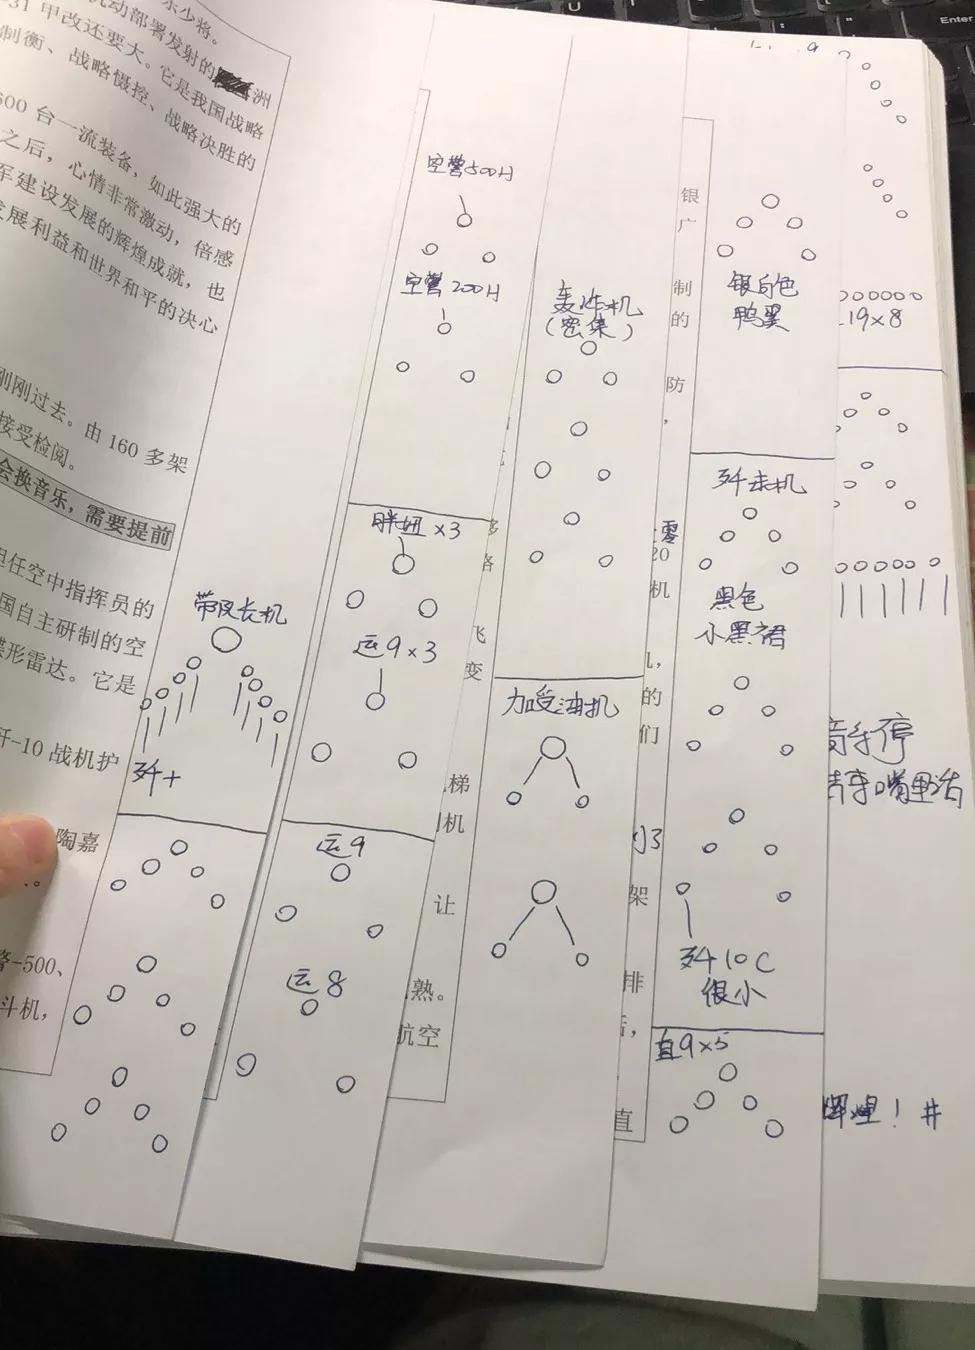 东少将。
机动部署发射的 洲
31 甲改还要大。它是我国战略
制衡、战略慑控、战略决胜的
600 台一流装备，如此强大的
之后，心情非常激动，倍感
军建设发展的辉煌成就，也
发展利益和世界和平的决心
刚刚过去。由 160 多架
接受检阅。
会换音乐，需要提前
担任空中指挥员的
国自主研制的空
碟形雷达。它是
歼-10 战机护
陶嘉
警-500、
斗机，
带队长机
歼十
空警500H
空警200H
胖妞×3
运9×3
运9
运8
飞
变
梯
机
让
熟。
航空
轰炸机
(密集)
加受油机
银
广
制
的
防
，
零
20
机
机，
的
们
到3
架
排
直
银白色
鸭翼
歼击机
黑色
小黑裙
歼10C
很小
直9×5
19×8
音乐停
辉煌！#
Enter